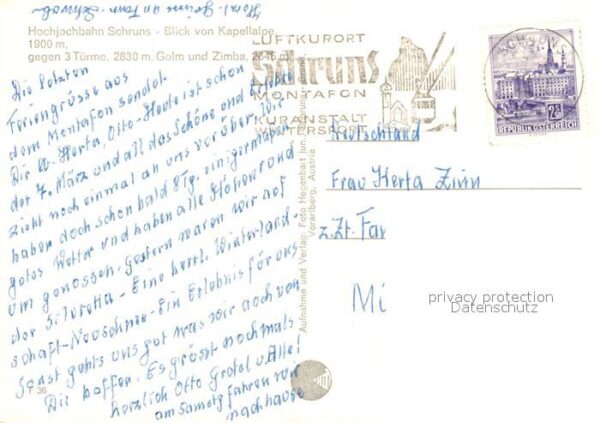 Hochjochbahn Schruns - Blick von Kapellalpe,
1900 m,
gegen 3 Türme, 2830 m, Golm und Zimba, 2645 m
Die letzten
Feriengrüsse aus
dem Montafon sendet
Dir lb. Herta, Otto - Heute ist schon
der 7. März und all das Schöne und Liebe
zieht noch einmal an uns vorüber. Wir
haben doch schon bald 8 Tg. einigermaßen
gutes Wetter und haben alle Höhen rund
um genossen. Gestern waren wir auf
der Silvretta - Eine herrl. Winterland-
schaft - Neuschnee - Ein Erlebnis für uns
Sonst gehts uns gut was wir auch von
Dir hoffen. Es grüsst nochmals
herzlich Otto Gretel u. Alte!
am Samstg fahren wir
nachhause
F 36
Herzl. Grüsse an Fam. Schwab
LUFTKURORT
Schruns
MONTAFON
KURANSTALT
WINTERSPORT
SCHRUNS
25
REPUBLIK ÖSTERREICH
Aufnahme und Verlag: Foto Hegenbart jun.
Vorarlberg, Austria
Deutschland
Frau Herta Zinn
z. Zt. Far
Mi
privacy protection
Datenschutz